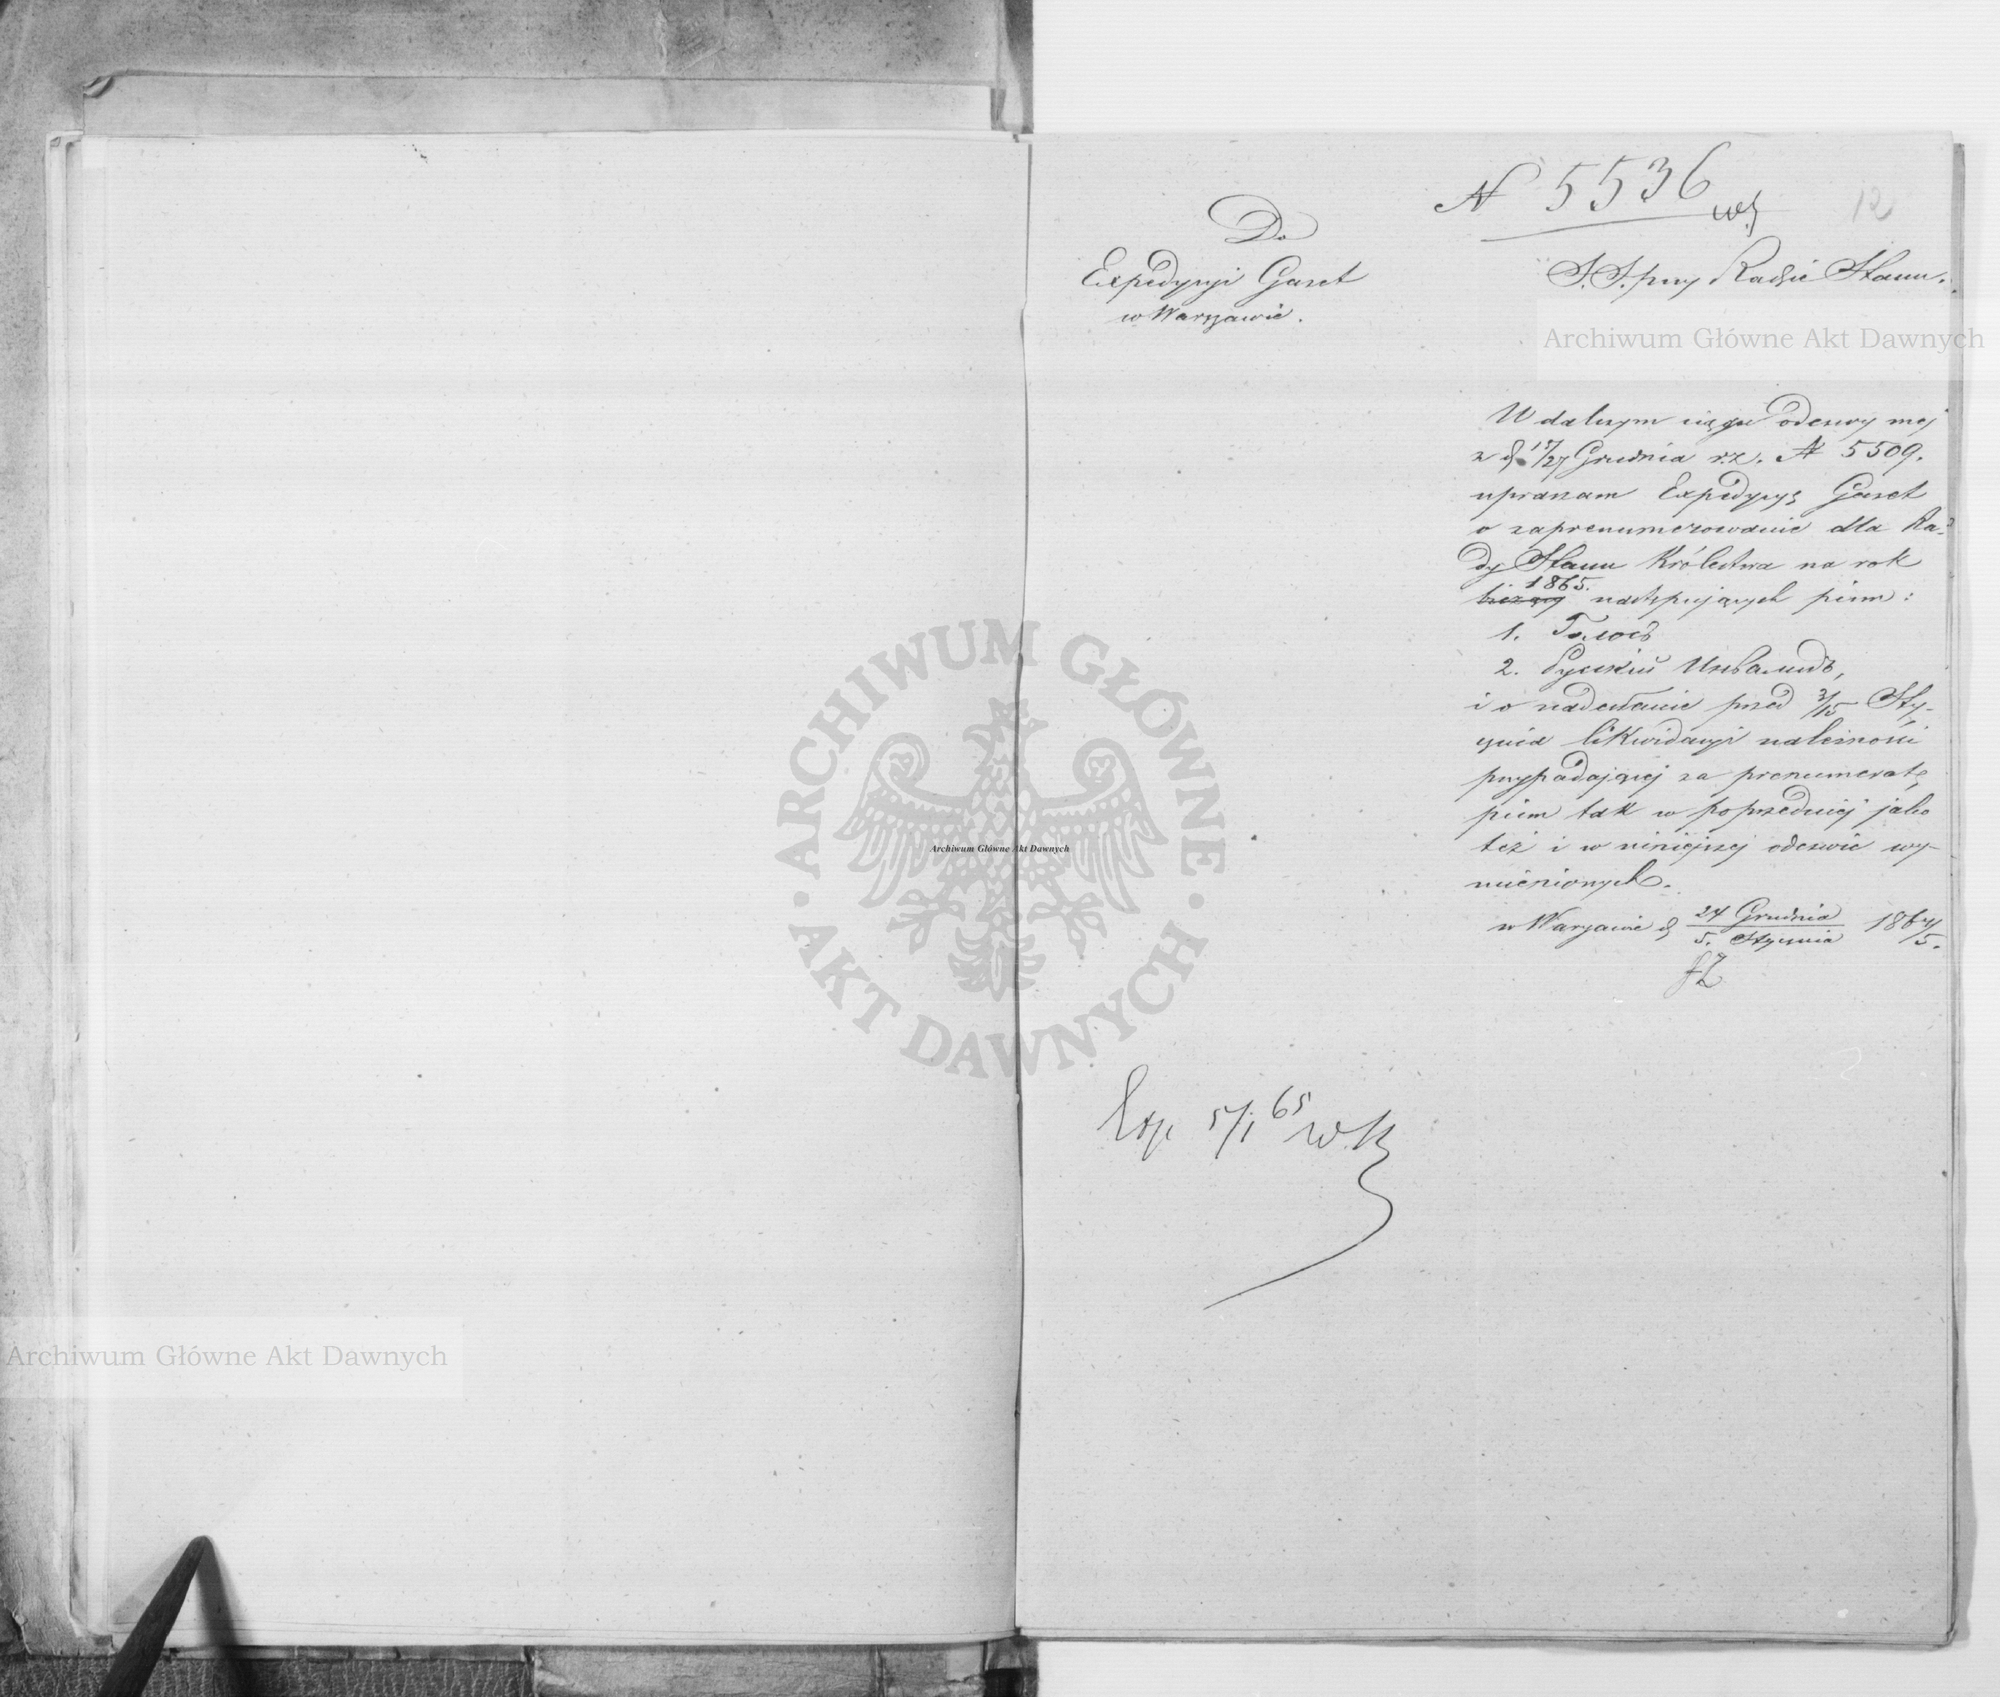 N 5536
12
Do
Expedycyi Gazet
w Warszawie.
S. S. przy Radzie Stanu.
W dalszym ciągu odezwy mej
z d. 15/27 Grudnia r.z. N 5509.
upraszam Expedycyę Gazet
o zaprenumerowanie dla Ra-
dy Stanu Królestwa na rok
1865.
bieżący następujących pism:
1. Голосъ
2. Русскій Инвалидъ,
i o nadesłanie przed 3/15 Sty-
cznia likwidacyi należności
przypadającej za prenumeratę
pism tak w poprzedniej jako
też i w niniejszej odezwie wy-
mienionych.
w Warszawie d. 24 Grudnia / 5. Stycznia 1864/5.
Exp 5/1 65 WK
Archiwum Główne Akt Dawnych
ARCHIWUM GŁÓWNE
AKT DAWNYCH
Archiwum Główne Akt Dawnych
Archiwum Główne Akt Dawnych